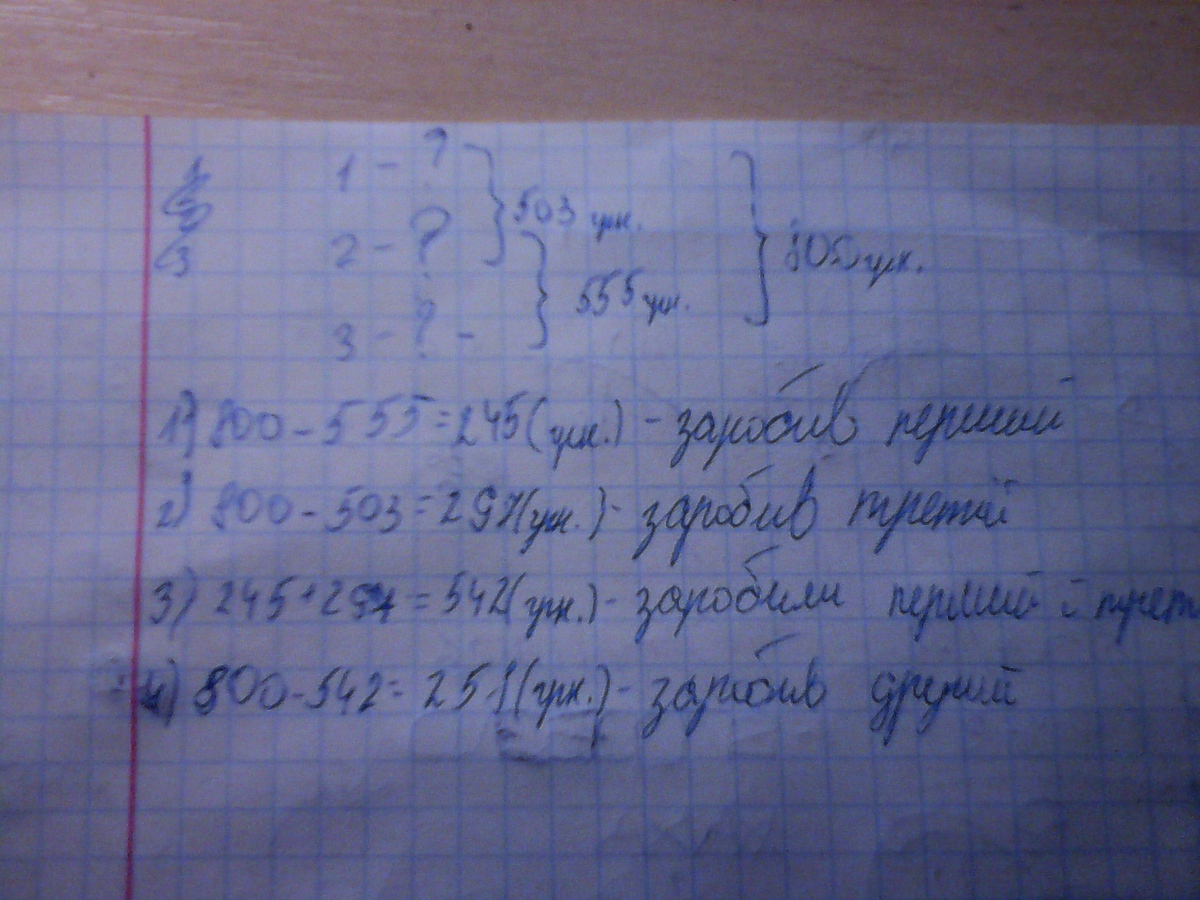 1 - ?
503 грн.
2 - ?
800 грн.
555 грн.
3 - ? -
1) 800 - 555 = 245 (грн.) - заробив перший
2) 800 - 503 = 297 (грн.) - заробив третій
3) 245 + 297 = 542 (грн.) - заробили перший і трет
4) 800 - 542 = 258 (грн.) - заробив другий